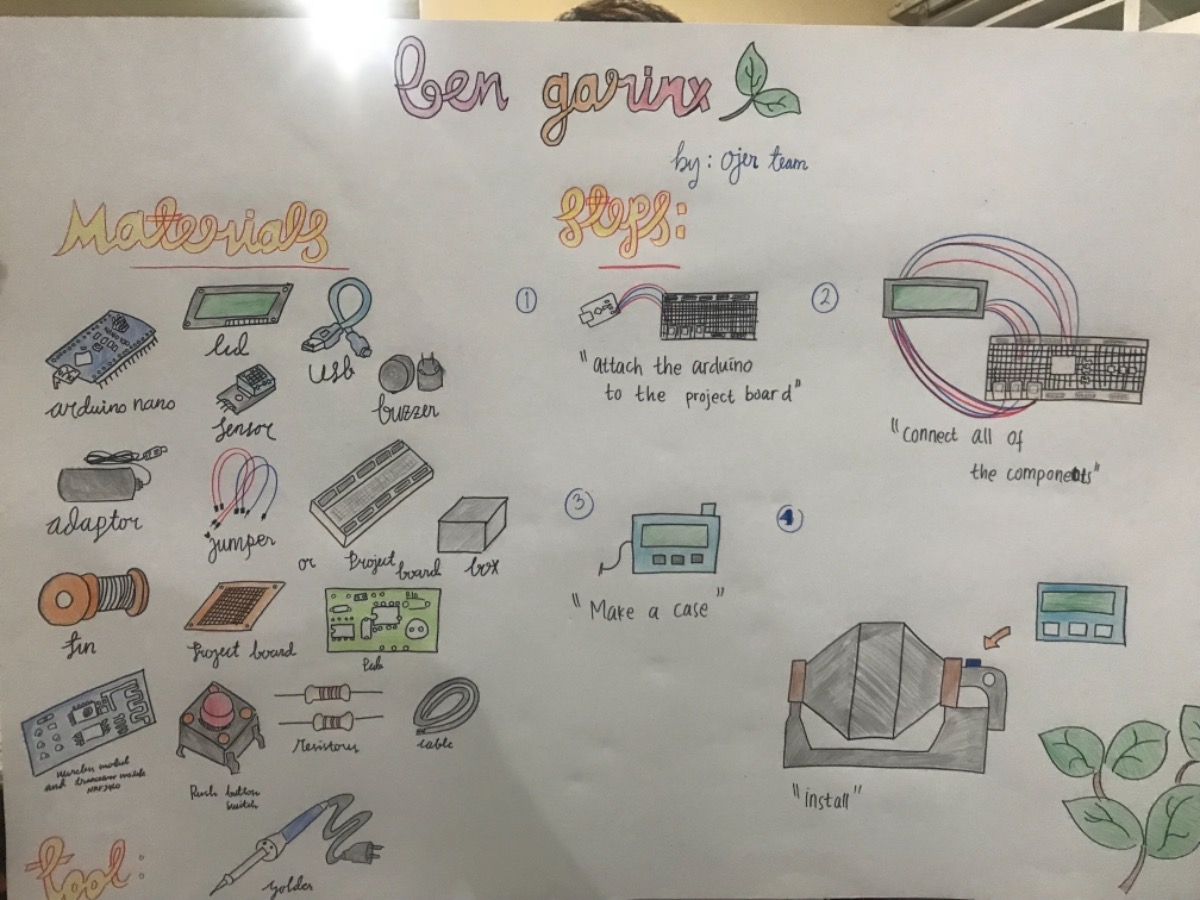 ben garinx
by: Ojer team
Materials
arduino nano
lcd
usb
sensor
buzzer
adaptor
jumper
or Project board
box
Project board
Resistores
cable
Push button
switch
tool:
Solder
Steps:
1
"attach the arduino
to the project board"
2
"Connect all of
the components"
3
"Make a case"
4
"install"